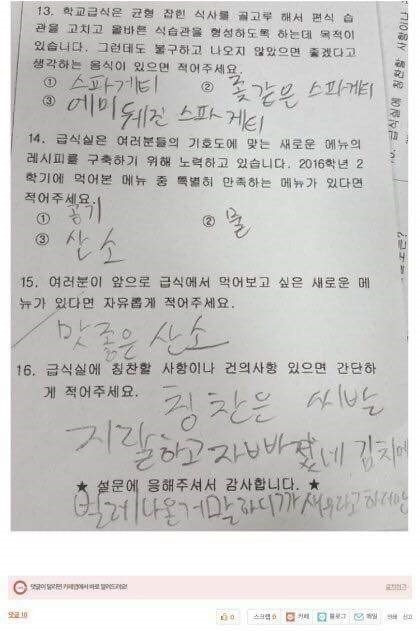 13. 학교급식은 균형 잡힌 식사를 골고루 해서 편식 습
관을 고치고 올바른 식습관을 형성하도록 하는데 목적이
있습니다. 그런데도 불구하고 나오지 않았으면 좋겠다고
생각하는 음식이 있으면 적어주세요.
① 스파게티 ② 좆같은 스파게티
③ 에미 뒤진 스파게티
14. 급식실은 여러분들의 기호도에 맞는 새로운 메뉴의
레시피를 구축하기 위해 노력하고 있습니다. 2016학년 2
학기에 먹어본 메뉴 중 특별히 만족하는 메뉴가 있다면
적어주세요.
① 공기 ② 물
③ 산소
15. 여러분이 앞으로 급식에서 먹어보고 싶은 새로운 메
뉴가 있다면 자유롭게 적어주세요.
맛좋은 산소
16. 급식실에 칭찬할 사항이나 건의사항 있으면 간단하
게 적어주세요.
칭찬은 씨발
지랄하고 자빠졌네 김치에
★ 설문에 응해주셔서 감사합니다. ★
벌레나온거 말하니까 새우라고 하더만
댓글이 달리면 카페앱에서 바로 알려드려요!
댓글 10
0
스크랩 0
카페
블로그
메일
인쇄
신고